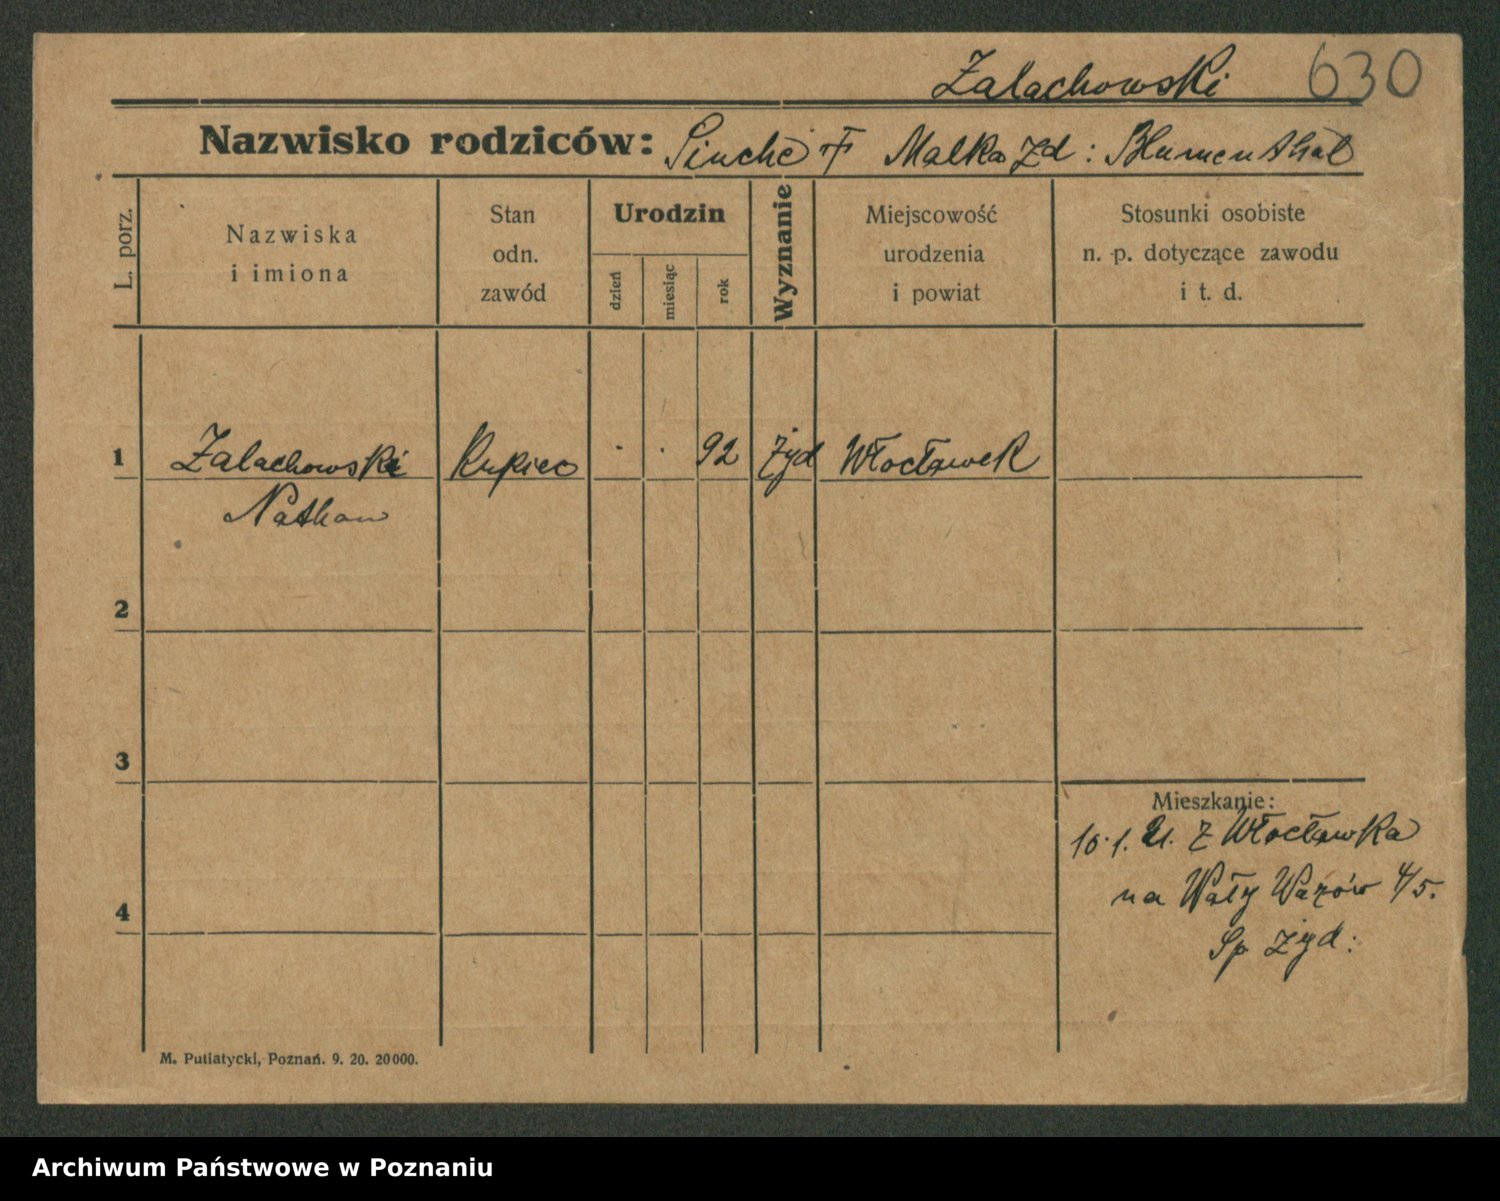 Zalachowski 630
Nazwisko rodziców: Sinche † Malka zd: Blumenthal
L. porz.
Nazwiska
i imiona
Stan
odn.
zawód
Urodzin
dzień
miesiąc
rok
Wyznanie
Miejscowość
urodzenia
i powiat
Stosunki osobiste
n. p. dotyczące zawodu
i t. d.
1 Zalachowski Kupiec . . 92 Żyd Włocławek
Nathan
2
3
Mieszkanie:
10.1.21. z Włocławka
na Wały Wazów 4/5.
4
Sp Żyd:
M. Putiatycki, Poznań. 9. 20. 20000.
Archiwum Państwowe w Poznaniu